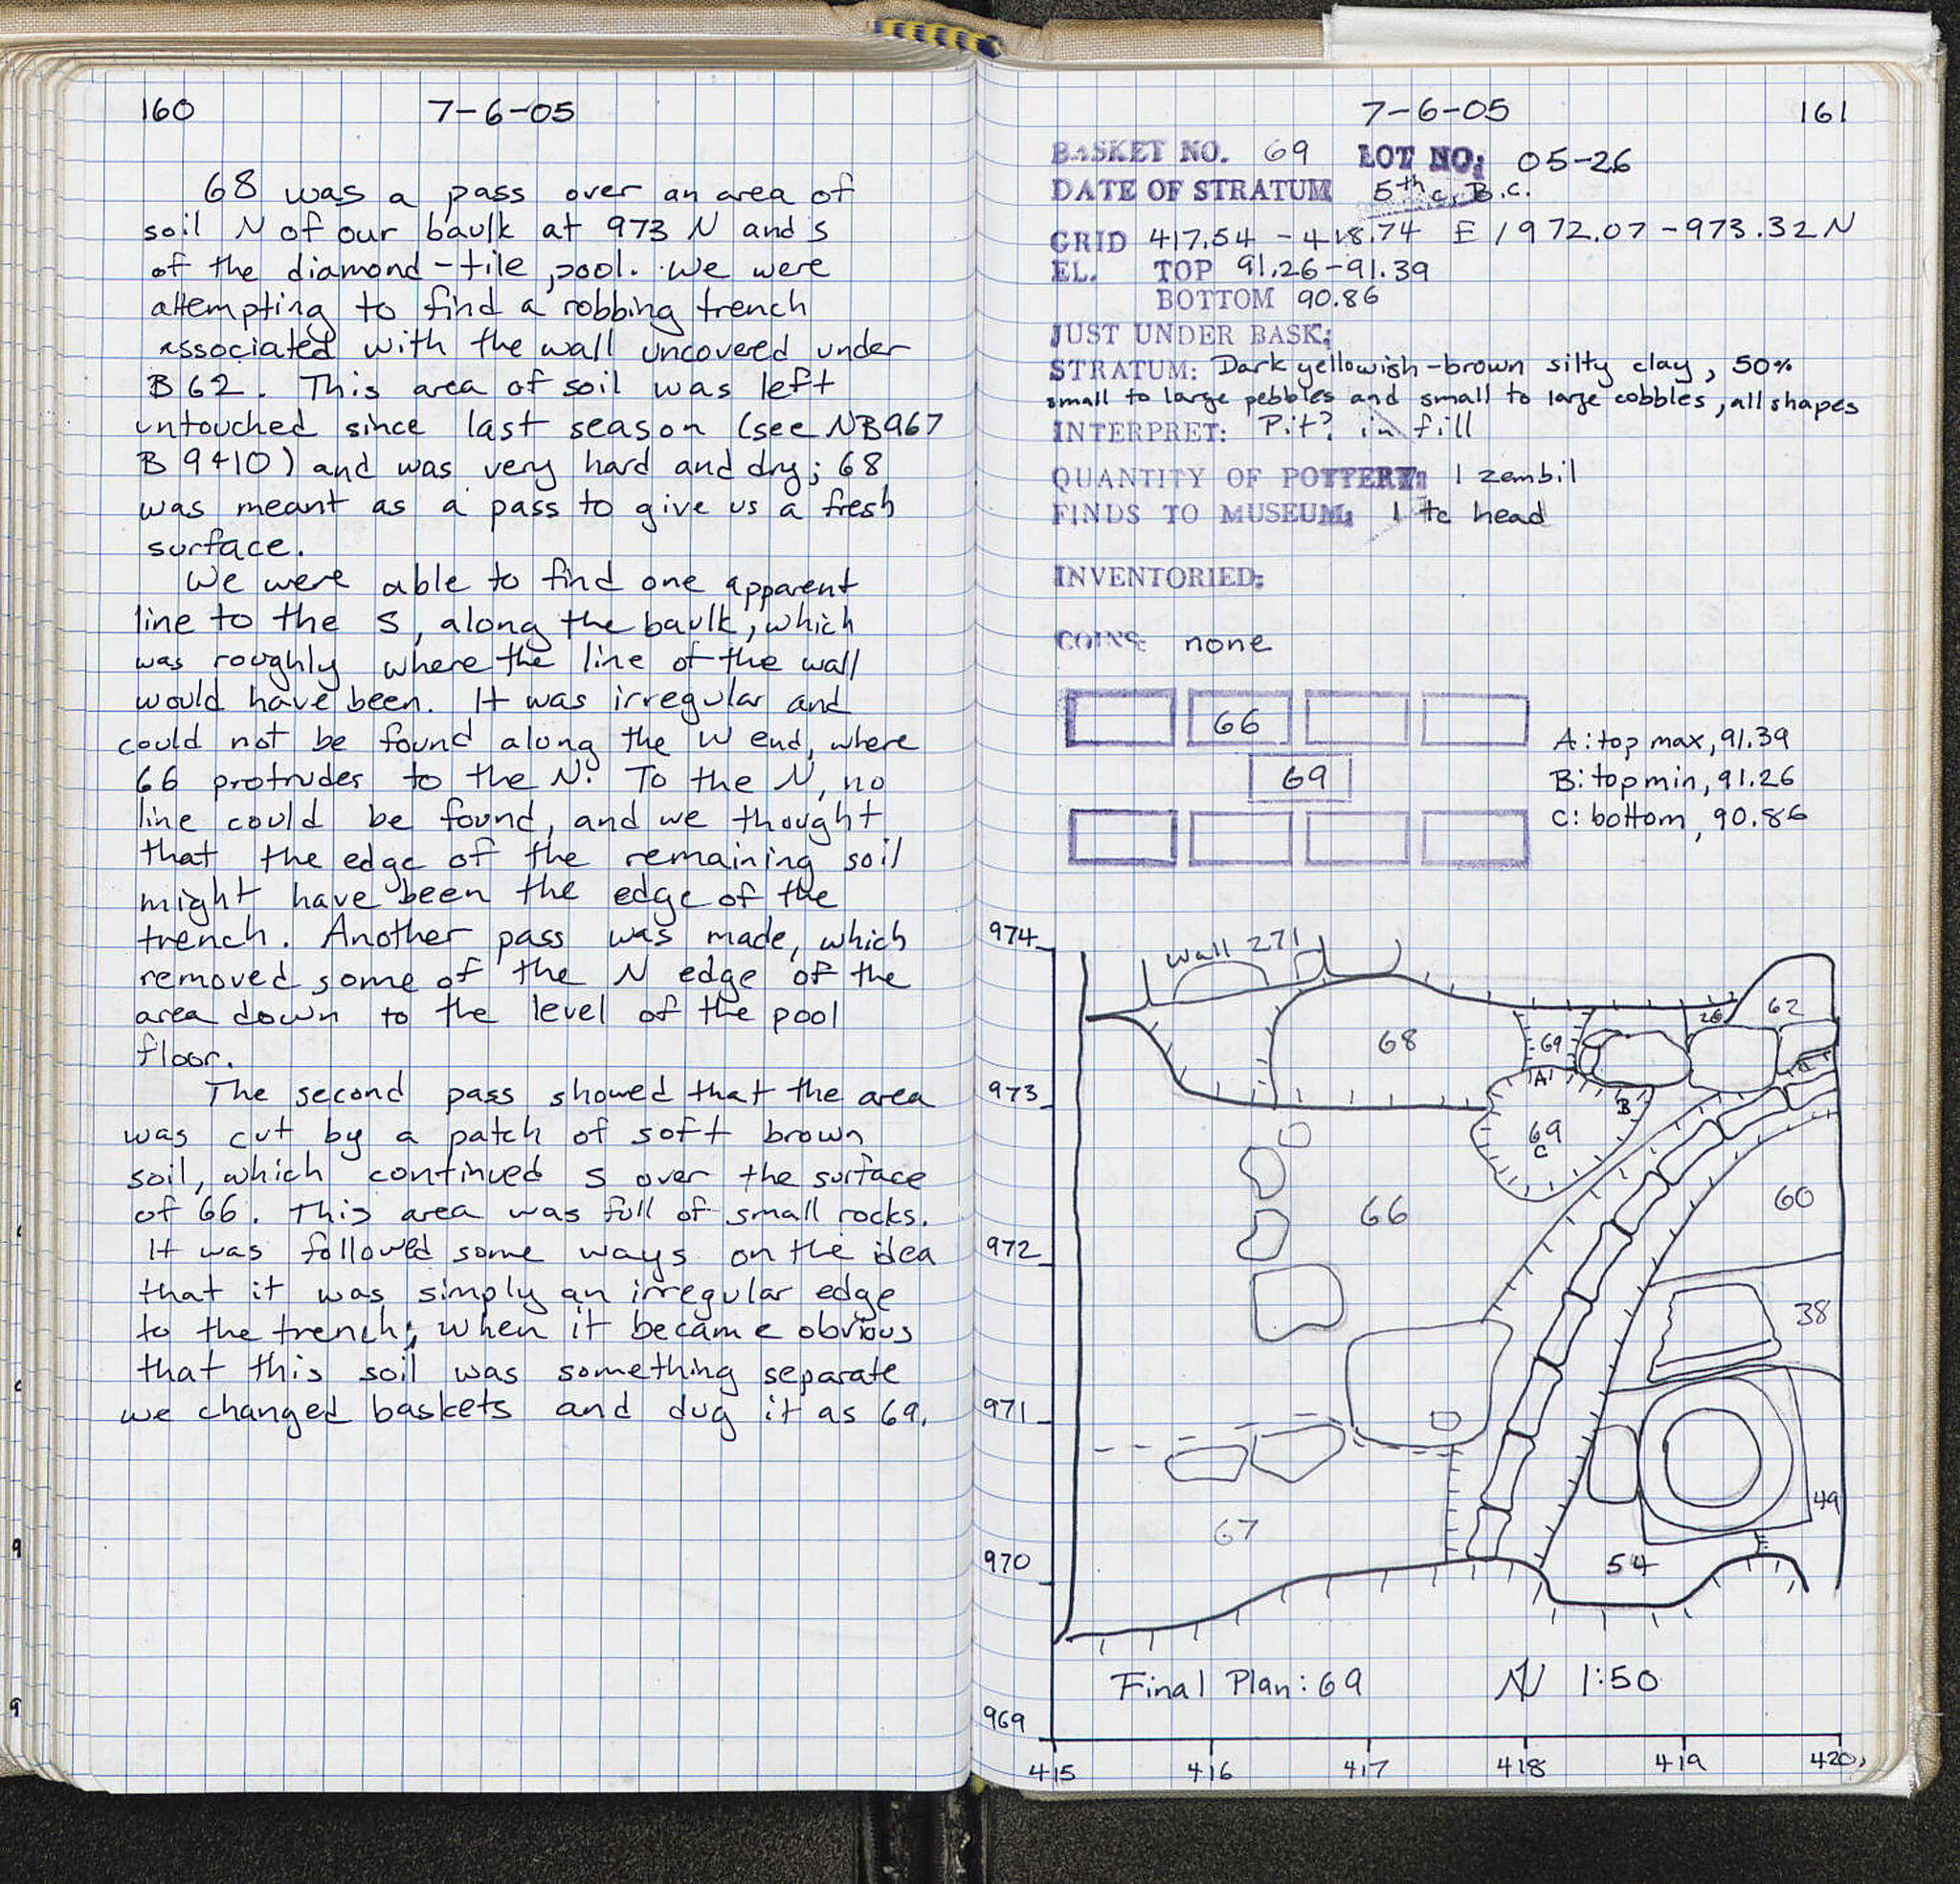 160
7-6-05
68 was a pass over an area of
soil N of our baulk at 973 N and S
of the diamond-tile pool. We were
attempting to find a robbing trench
associated with the wall uncovered under
B 62. This area of soil was left
untouched since last season (see NB967
B 9+10) and was very hard and dry; 68
was meant as a pass to give us a fresh
surface.
We were able to find one apparent
line to the S, along the baulk, which
was roughly where the line of the wall
would have been. It was irregular and
could not be found along the W end, where
66 protrudes to the N. To the N, no
line could be found, and we thought
that the edge of the remaining soil
might have been the edge of the
trench. Another pass was made, which
removed some of the N edge of the
area down to the level of the pool
floor.
The second pass showed that the area
was cut by a patch of soft brown
soil, which continued S over the surface
of 66. This area was full of small rocks.
It was followed some ways on the idea
that it was simply an irregular edge
to the trench; when it became obvious
that this soil was something separate
we changed baskets and dug it as 69.
7-6-05
161
BASKET NO. 69 LOT NO: 05-26
DATE OF STRATUM 5th c. B.C.
GRID 417.54 - 418.74 E / 972.07 - 973.32 N
EL. TOP 91.26-91.39
BOTTOM 90.86
JUST UNDER BASK:
STRATUM: Dark yellowish-brown silty clay, 50%
small to large pebbles and small to large cobbles, all shapes
INTERPRET: Pit? in fill
QUANTITY OF POTTERY: 1 zembil
FINDS TO MUSEUM: 1 tc head
INVENTORIED:
COINS: none
66
69
A: top max, 91.39
B: top min, 91.26
C: bottom, 90.86
974
wall 271
62
26
68
69
973
A
B
69
C
66
60
972
38
971
49
67
970
54
Final Plan: 69 N 1:50
969
415 416 417 418 419 420